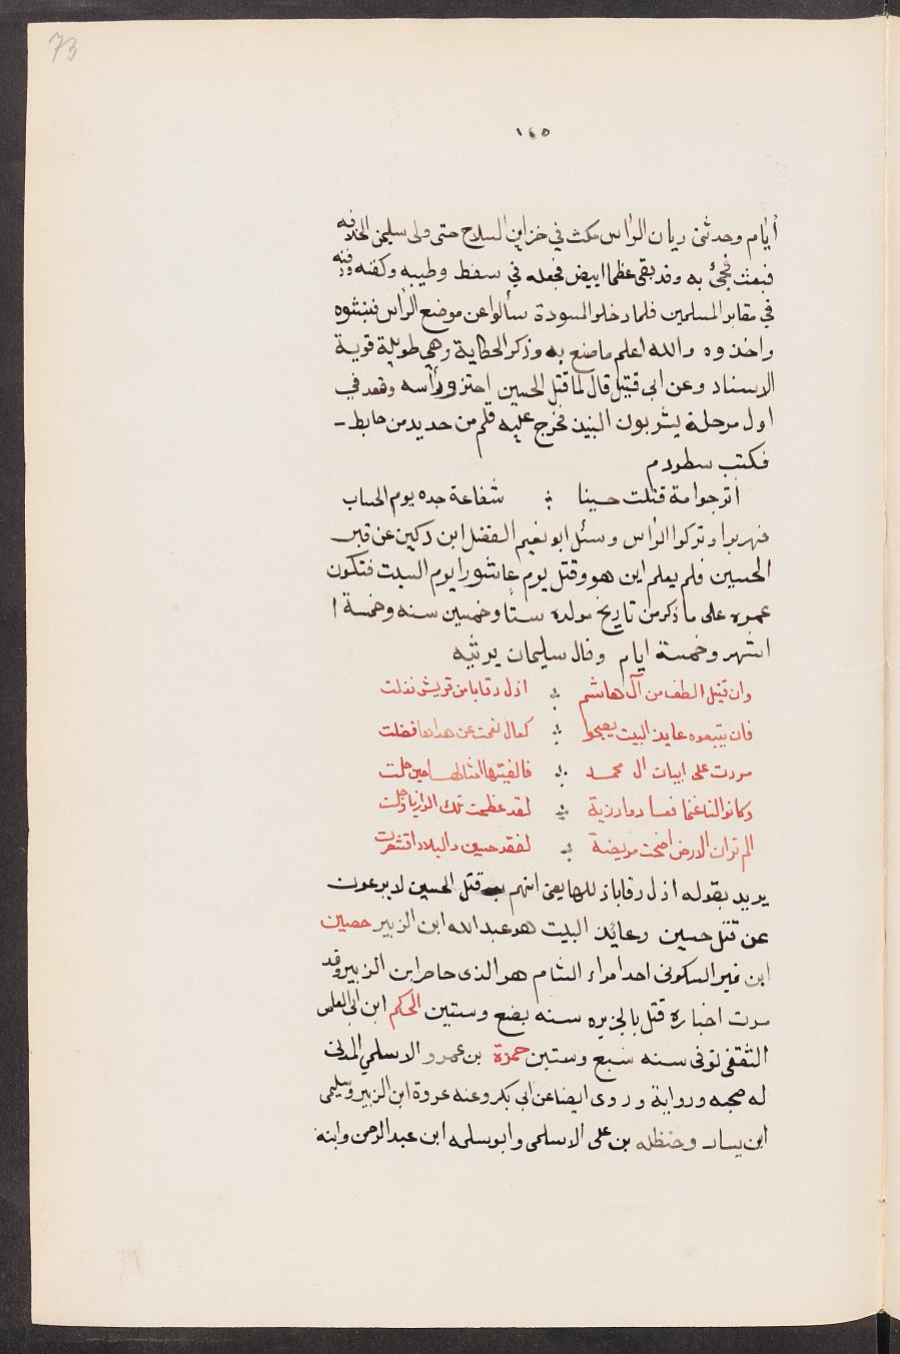 73
١٤٥
أيام وحدثنى ريان الراس مكث في خزاين السلاح حتى ولى سليمن الخلافه
فبعث فجئ به وقد بقى عظما ابيض فجعله في سفط وطيبه وكفنه ودفنه
في مقابر المسلمين فلما دخلو المسودة سألوا عن موضع الرأس فنبشوه
واخذوه والله اعلم ما صنع به وذكر الحكاية وهي طويلة قوية
الاسناد وعن ابى قتيل قال لما قتل الحسين احتزورأسه وقعد في
اول مرحلة يشربون النبيذ فخرج عليه قلم من حديد من حايط
فكتب سطور دم
أترجوا مة قتلت حسينا شفاعة جده يوم الحساب
فهربوا وتركوا الراس وسئل ابو نعيم الفضل ابن دكين عن قبر
الحسين فلم يعلم اين هو وقتل يوم عاشورا يوم السبت فتكون
عمره على ما ذكر من تاريخ مولده ستا وخمسين سنه وخمسة ا
اشهر وخمسة ايام وقال سليمان يرثيه
وان قتيل الطف من آل هاشم اذل رقابا من قريش فذلت
فان يتبعوه عايذ البيت يصبحوا كعال نعمت عن هداها فضلت
مررت على ابيات ال محمد فالفيتها امثالها حين حلت
وكانوا لنا غنما فعادوا رزية لقد عظمت تلك الرزايا وجلت
الم تر ان الارض اضحت مريضة لفقد حسين والبلاد اقشعرت
يريد بقوله اذل رقابا ذللها يعنى انهم قتل الحسين لا يرعون
عن قتل حسين وعائذ البيت هو عبد الله ابن الزبير حصين
ابن نمير السكونى احد امراء الشام هو الذى حاصر ابن الزبير وقد
مرت اخباره قتل بالجزيره سنه بضع وستين الحكم ابن ابى العاص
الثقفى توفى سنه سبع وستين حمزة بن عمرو الاسلمي المدنى
له صحبه ورواية وروى ايضا عن ابى بكر وعنه عروة ابن الزبير وسليمى
ابن يسار وحنظله بن على الاسلمى وابو سلمه ابن عبد الرحمن وابنه